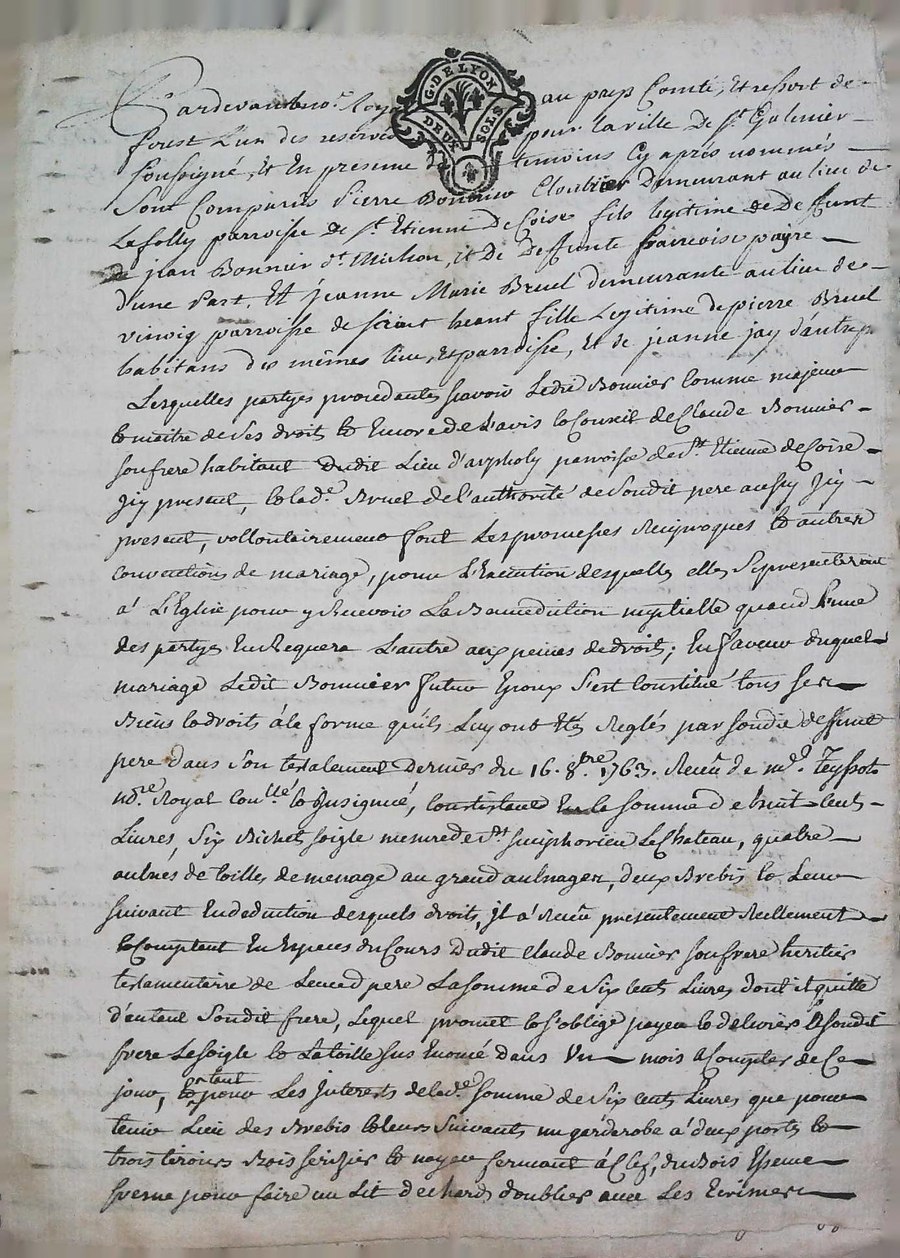 G. DE LYON
DEUX SOLS
Pardevant no.re roy au pays Comté, Et ressort de
forest L'un des reservés pour la ville De St. Galmier
soussigné, Et En presence temoins Cy après nommés
sont Comparus Pierre Bonnier Cloutier Demeurant au lieu de
Lafolly parroisse de St. Etienne de Coise fils legitime de Deffunt
jean Bonnier dt. Michon, et De Deffunte francoise payre
d'une Part, Et jeanne Marie Bruel demeurante au lieu de
vinoiq parroisse de saint heant fille Legitime de pierre Bruel
habitans des mêmes lieu, et parroisse, et de jeanne jay d'autre
Lesquelles partyes procedantes scavoir Ledit Bonnier Comme majeur
et maitre de ses droits et Encore de L'avis et Conseil de Claude Bonnier
son frere habitant dudit Lieu d'arpholy parroisse de St Etienne de Coise
jcy present, et lade. Bruel de l'authorité de Sondit pere aussy jcy
present, vollontairement font Les promesses Reciproques et autres
conventions de mariage, pour L'Execution desquelles elles se presenteront
a L'Eglise pour y Recevoir La Benediction nuptialle quand l'une
des partyes En Requera L'autre aux peines de droit; En faveur duquel
mariage Ledit Bonnier futur Epoux s'est Constitué tous ses
Biens et droits à la forme qu'ils Luy ont Etés Reglés par sondit deffunt
pere dans Son testament Dernier du 16. 8.bre 1763. Receu de md. Teyssot
no.re Royal et Insignué, Consistant En la somme de huit Cents
Livres, Six Bichet soigle mesure de St simphorien Le Chateau, quatre
aulnes de toilles de menage au grand aulnages, deux Brebis et Leur
suivant En deduction desquels droits, jl a Receu presentement Reellement
et Comptant En Especes du Cours Dudit Claude Bonnier son frere heritier
testamentaire de Leurd pere La somme de Six Cents Livres dont il quitte
d'autant Sondit frere, Lequel promet et s'oblige payer et delivrer a sondit
frere Le soigle et La toille sus Enoncé dans Un mois a Compter de Ce
jour, et tant pour Les Interets de lade. somme de Six Cents Livres que pour
tenir Lieu des Brebis et leurs Suivants un garderobe a deux ports et
trois tiroirs Bois serizier et noyer fermant à Clef, du Bois Essence
verne pour faire un Lit de chards doublier avec Les Ecrimes